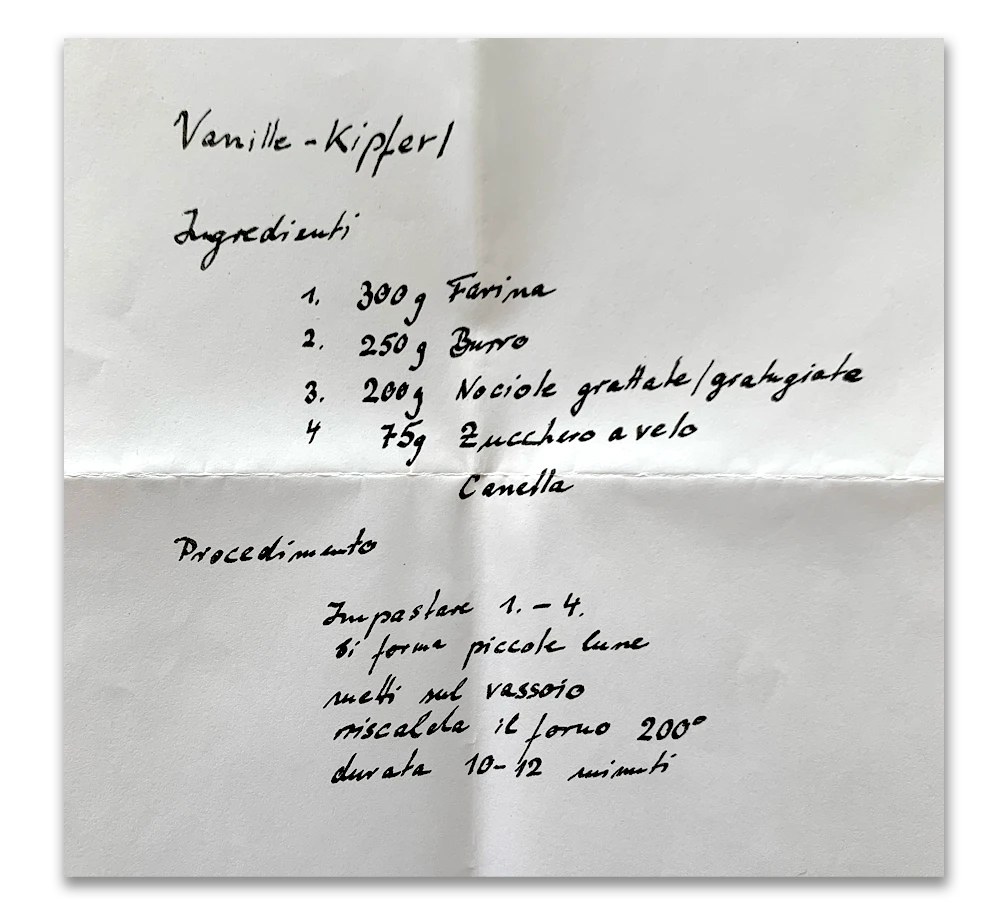 Vanille-Kipferl
Ingredienti
1. 300g Farina
2. 250g Burro
3. 200g Nociole grattate/gratugiate
4 75g Zucchero a velo
Canella
Procedimento
Impastare 1.-4.
si forma piccole lune
metti sul vassoio
riscalda il forno 200°
durata 10-12 minuti